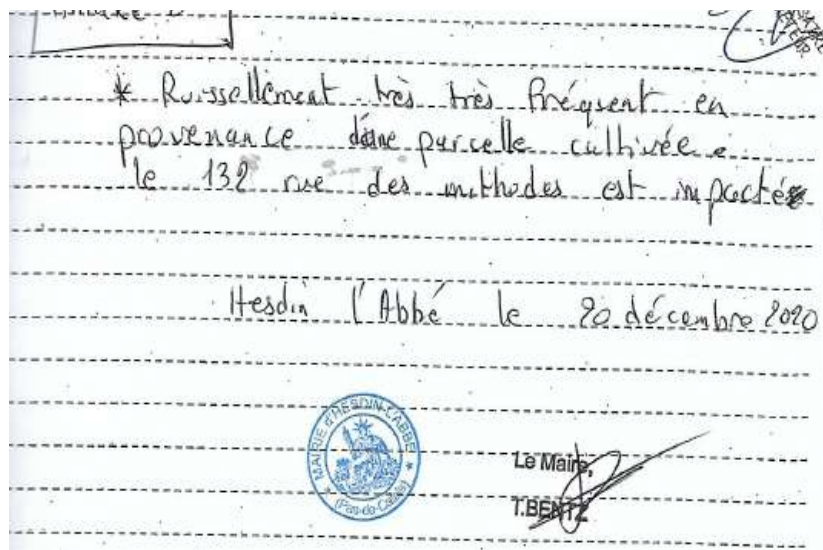 * Ruissellement très très fréquent en
provenance d'une parcelle cultivée.
le 132 rue des est impacté
Hesdin l'Abbé le 20 décembre 2020
MAIRIE d'HESDIN-L'ABBE
(Pas-de-Calais)
Le Maire,
T.BENTZ